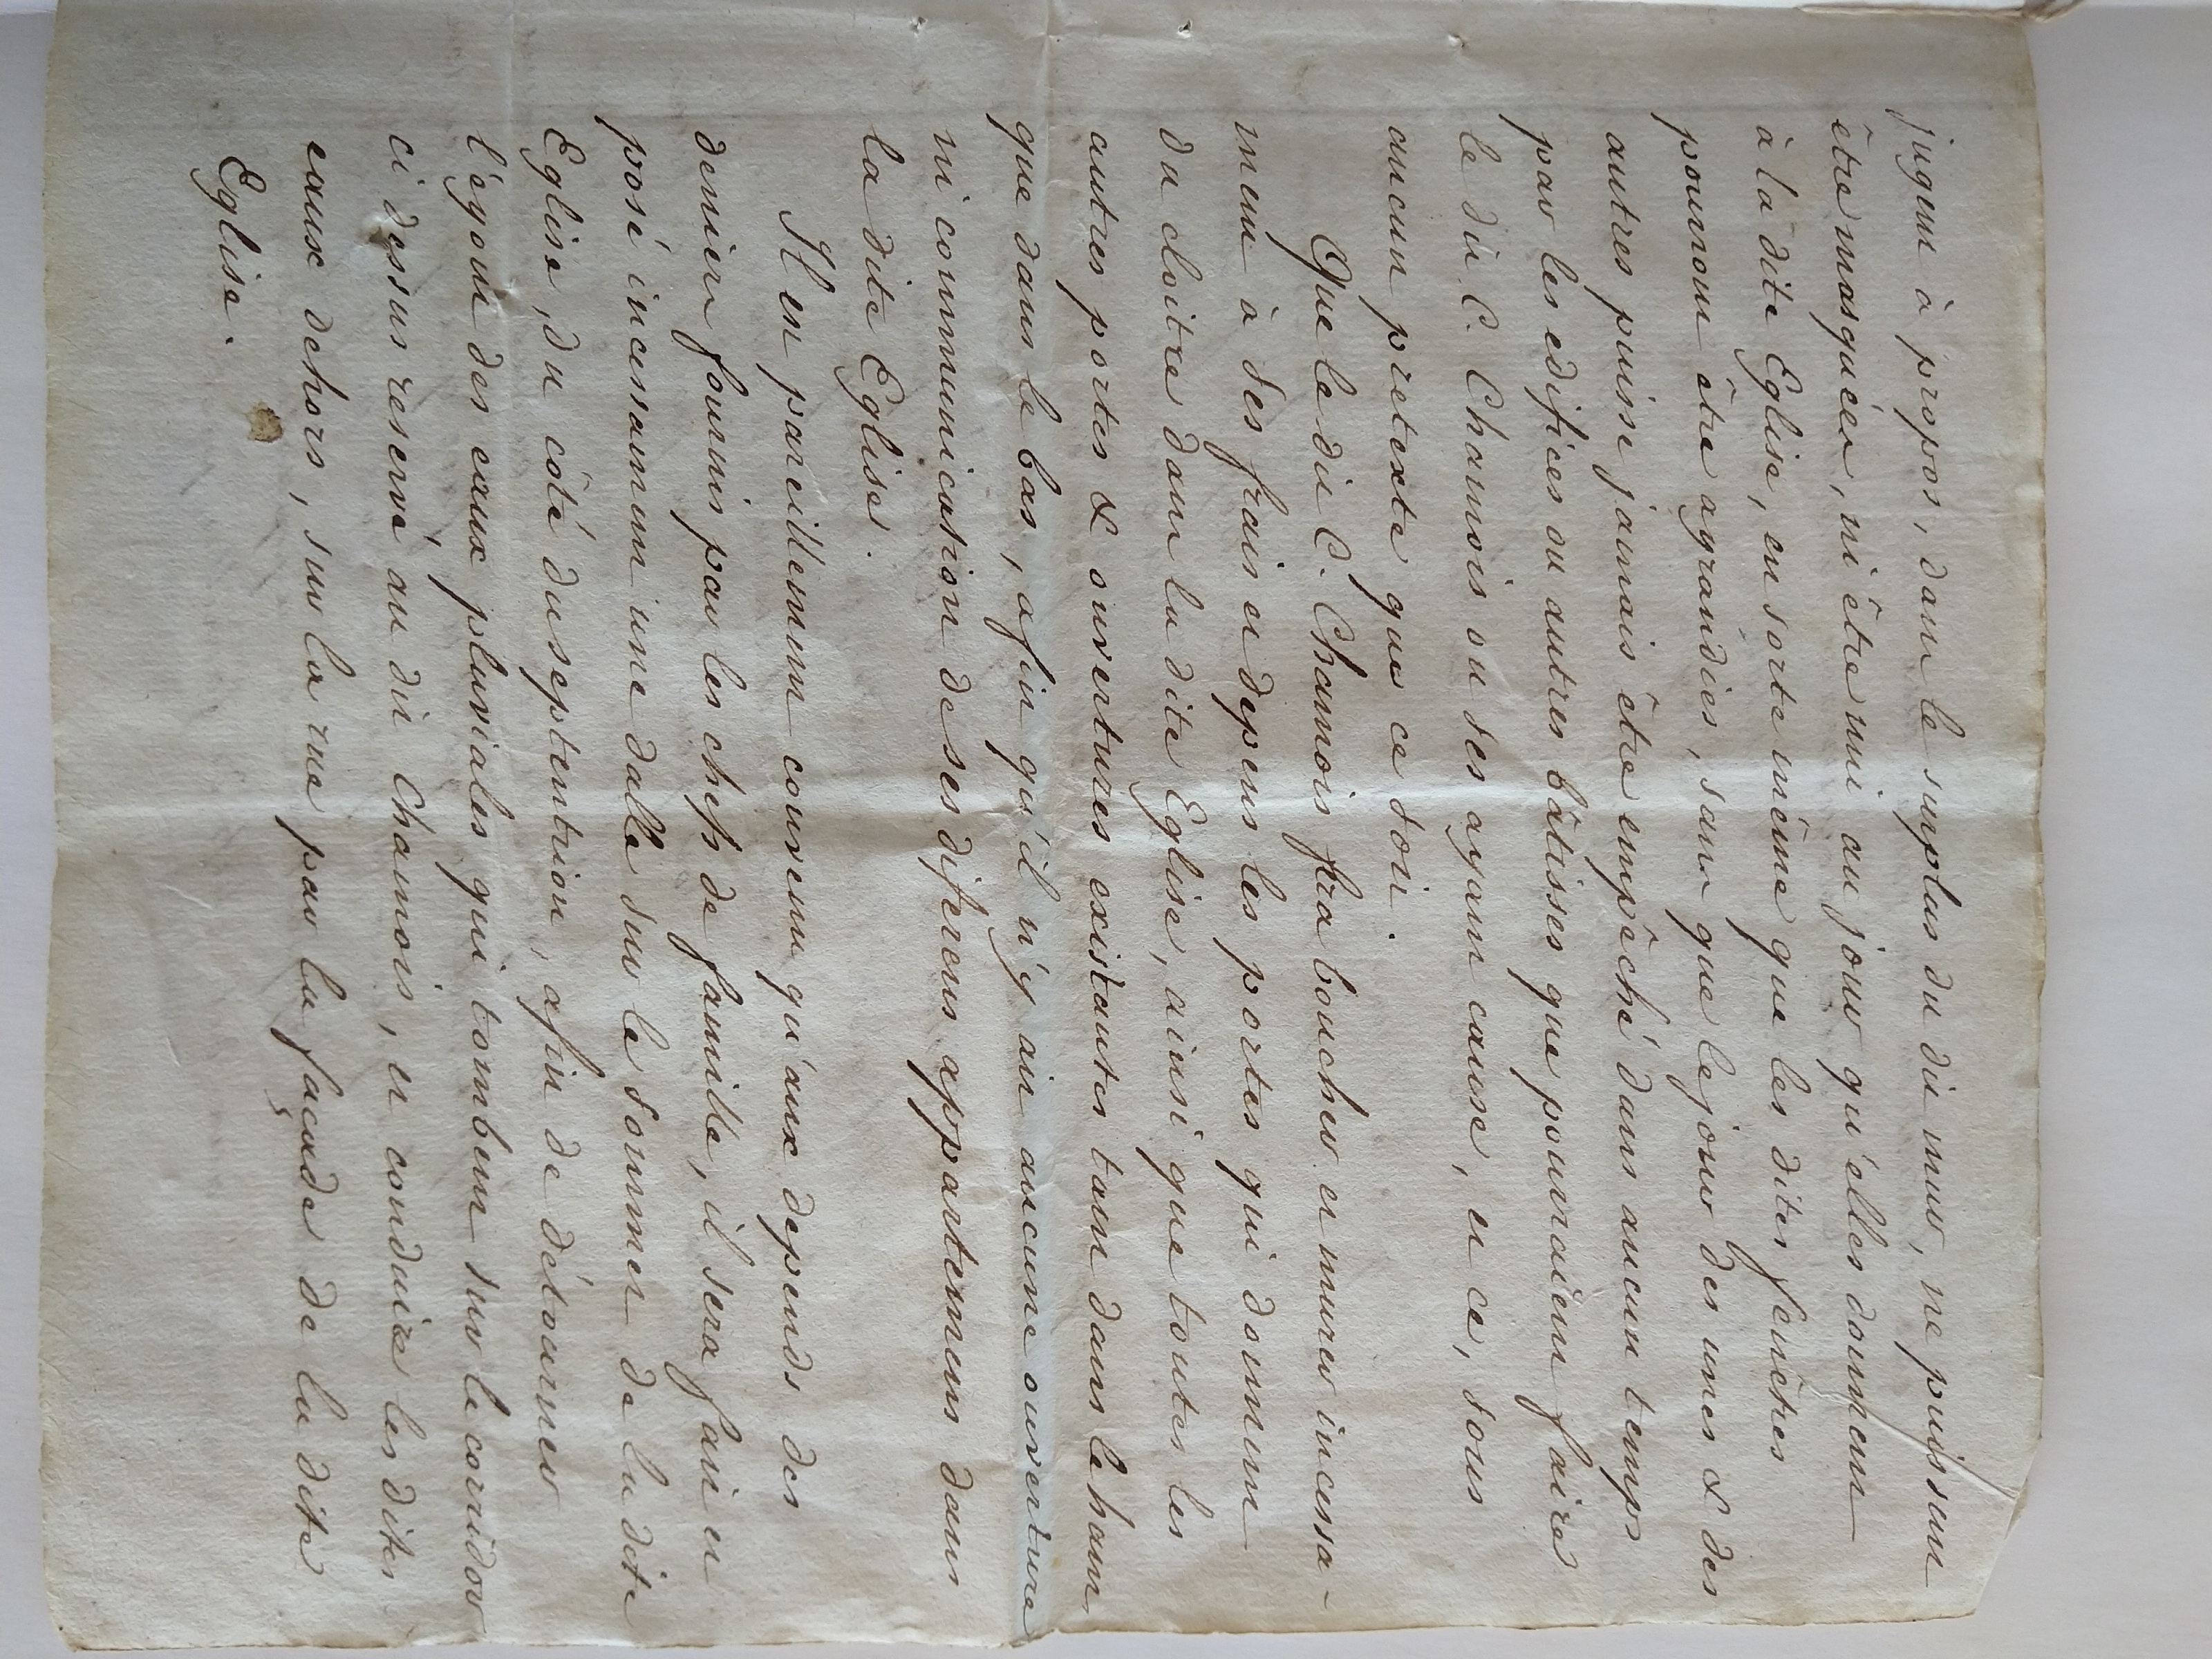 jugent à propos, dans le surplus du dit mur, ne puissent
être masquées, ni être nui au jour qu'elles donnent
à la dite Eglise, en sorte même que les dites fenêtres
pourront être agrandies, sans que le jour des unes & des
autres puisse jamais être empêché dans aucun temps
par les edifices ou autres bâtisses que pourraient faire
le dit C. Chamois ou ses ayant cause, en ce, sous
aucun pretexte que ce soit.
Que le dit C. Chamois fera boucher et murer incessa-
ment à ses frais et depens les portes qui donnent
du cloitre dans la dite Eglise, ainsi que toutes les
autres portes & ouvertures existantes tant dans le haut
que dans le bas, afin qu'il n'y ait aucune ouverture
ni communication de ses diferens appartemens dans
la dite Eglise.
Il est pareillement convenu qu'aux depends des
deniers fournis par les chefs de famille, il sera fait et
posé incessamment une dalle sur le sommet de la dite
Eglise, du coté du septentrion, afin de détourner
l'égout des eaux pluviales qui tombent sur le corridor
ci dessus reservé au dit Chamois, et conduire les dites
eaux dehors, sur la rue par la façade de la dite
Eglise.